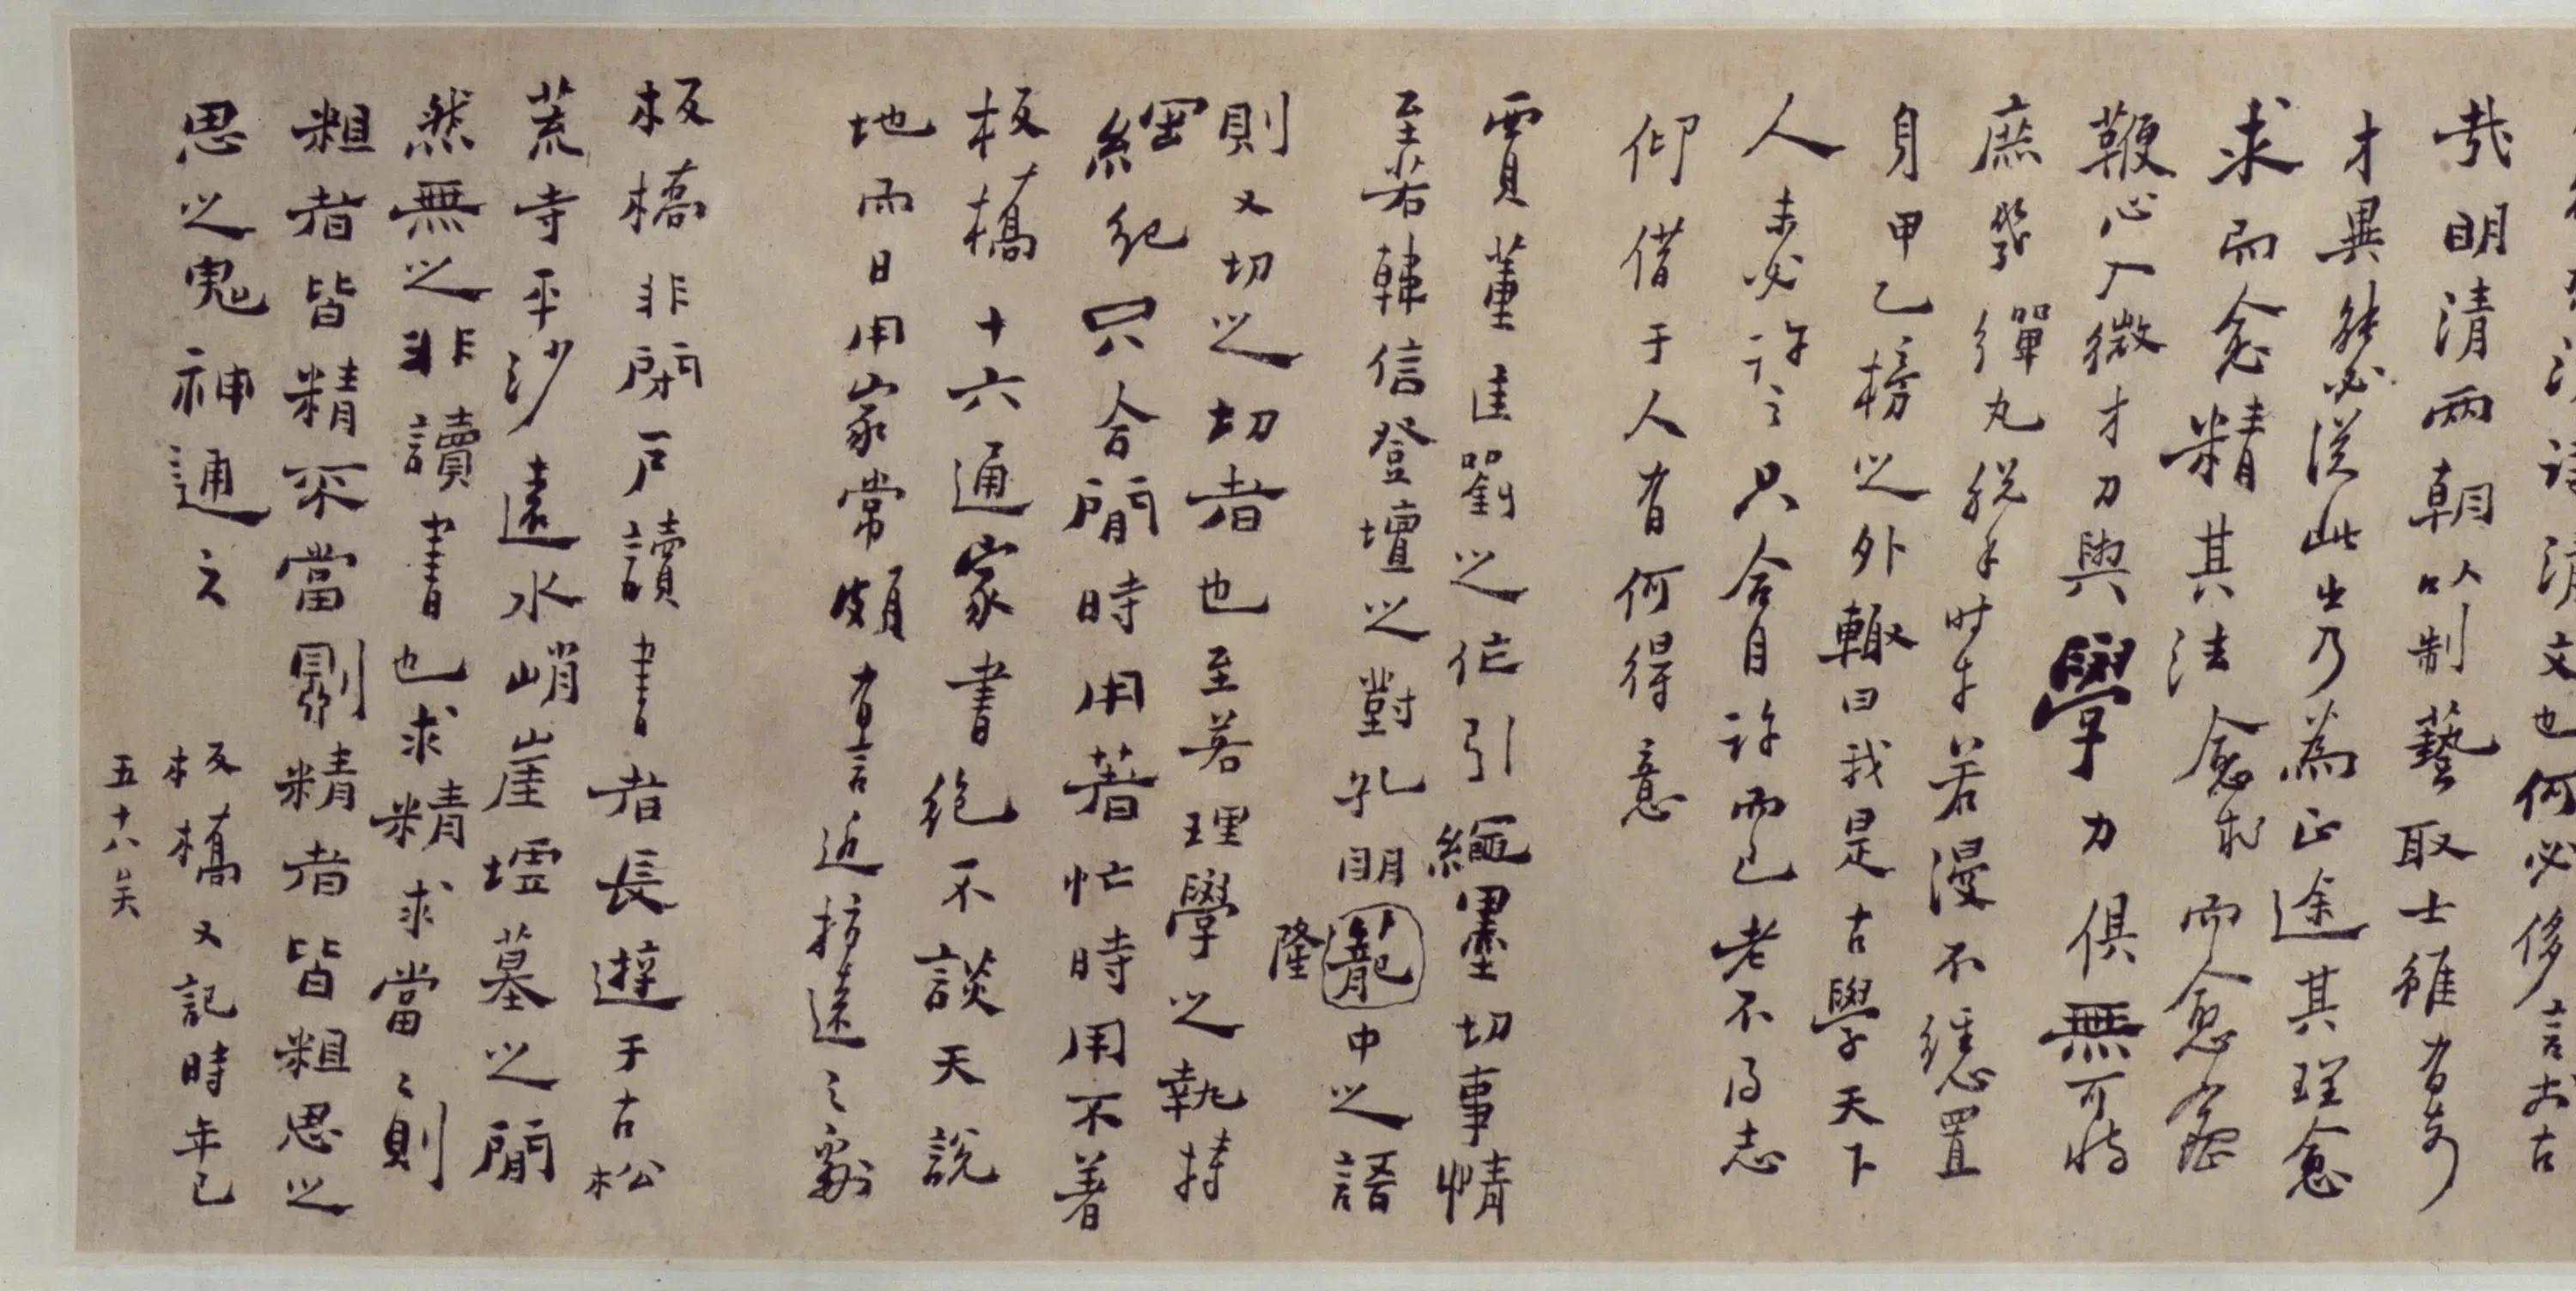 清文也何必侈言於古
哉明清兩朝以制藝取士雖有奇
才異能必從此出乃為正途其理愈
求而愈精其法愈求而愈密
鞭心入微才力與學力俱無可恃
庶幾彈丸脫手時乎若漫不經心置
身甲乙榜之外輒曰我是古學天下
人未必許之只合自許而已老不得志
仰借于人有何得意
賈董匡劉之作引繩墨切事情
至若韓信登壇之對孔明籠中之語
隆
則又切之切者也至若理學之執持
綱紀只合閒時用著忙時用不著
板橋十六通家書絕不談天說
地而日用家常頗有言近指遠之處
板橋非閉戶讀書者長遊于古松
荒寺平沙遠水峭崖墟墓之間
然無之非讀書也求精求當當則
粗者皆精不當則精者皆粗思之
思之鬼神通之
板橋又記時年已
五十八矣